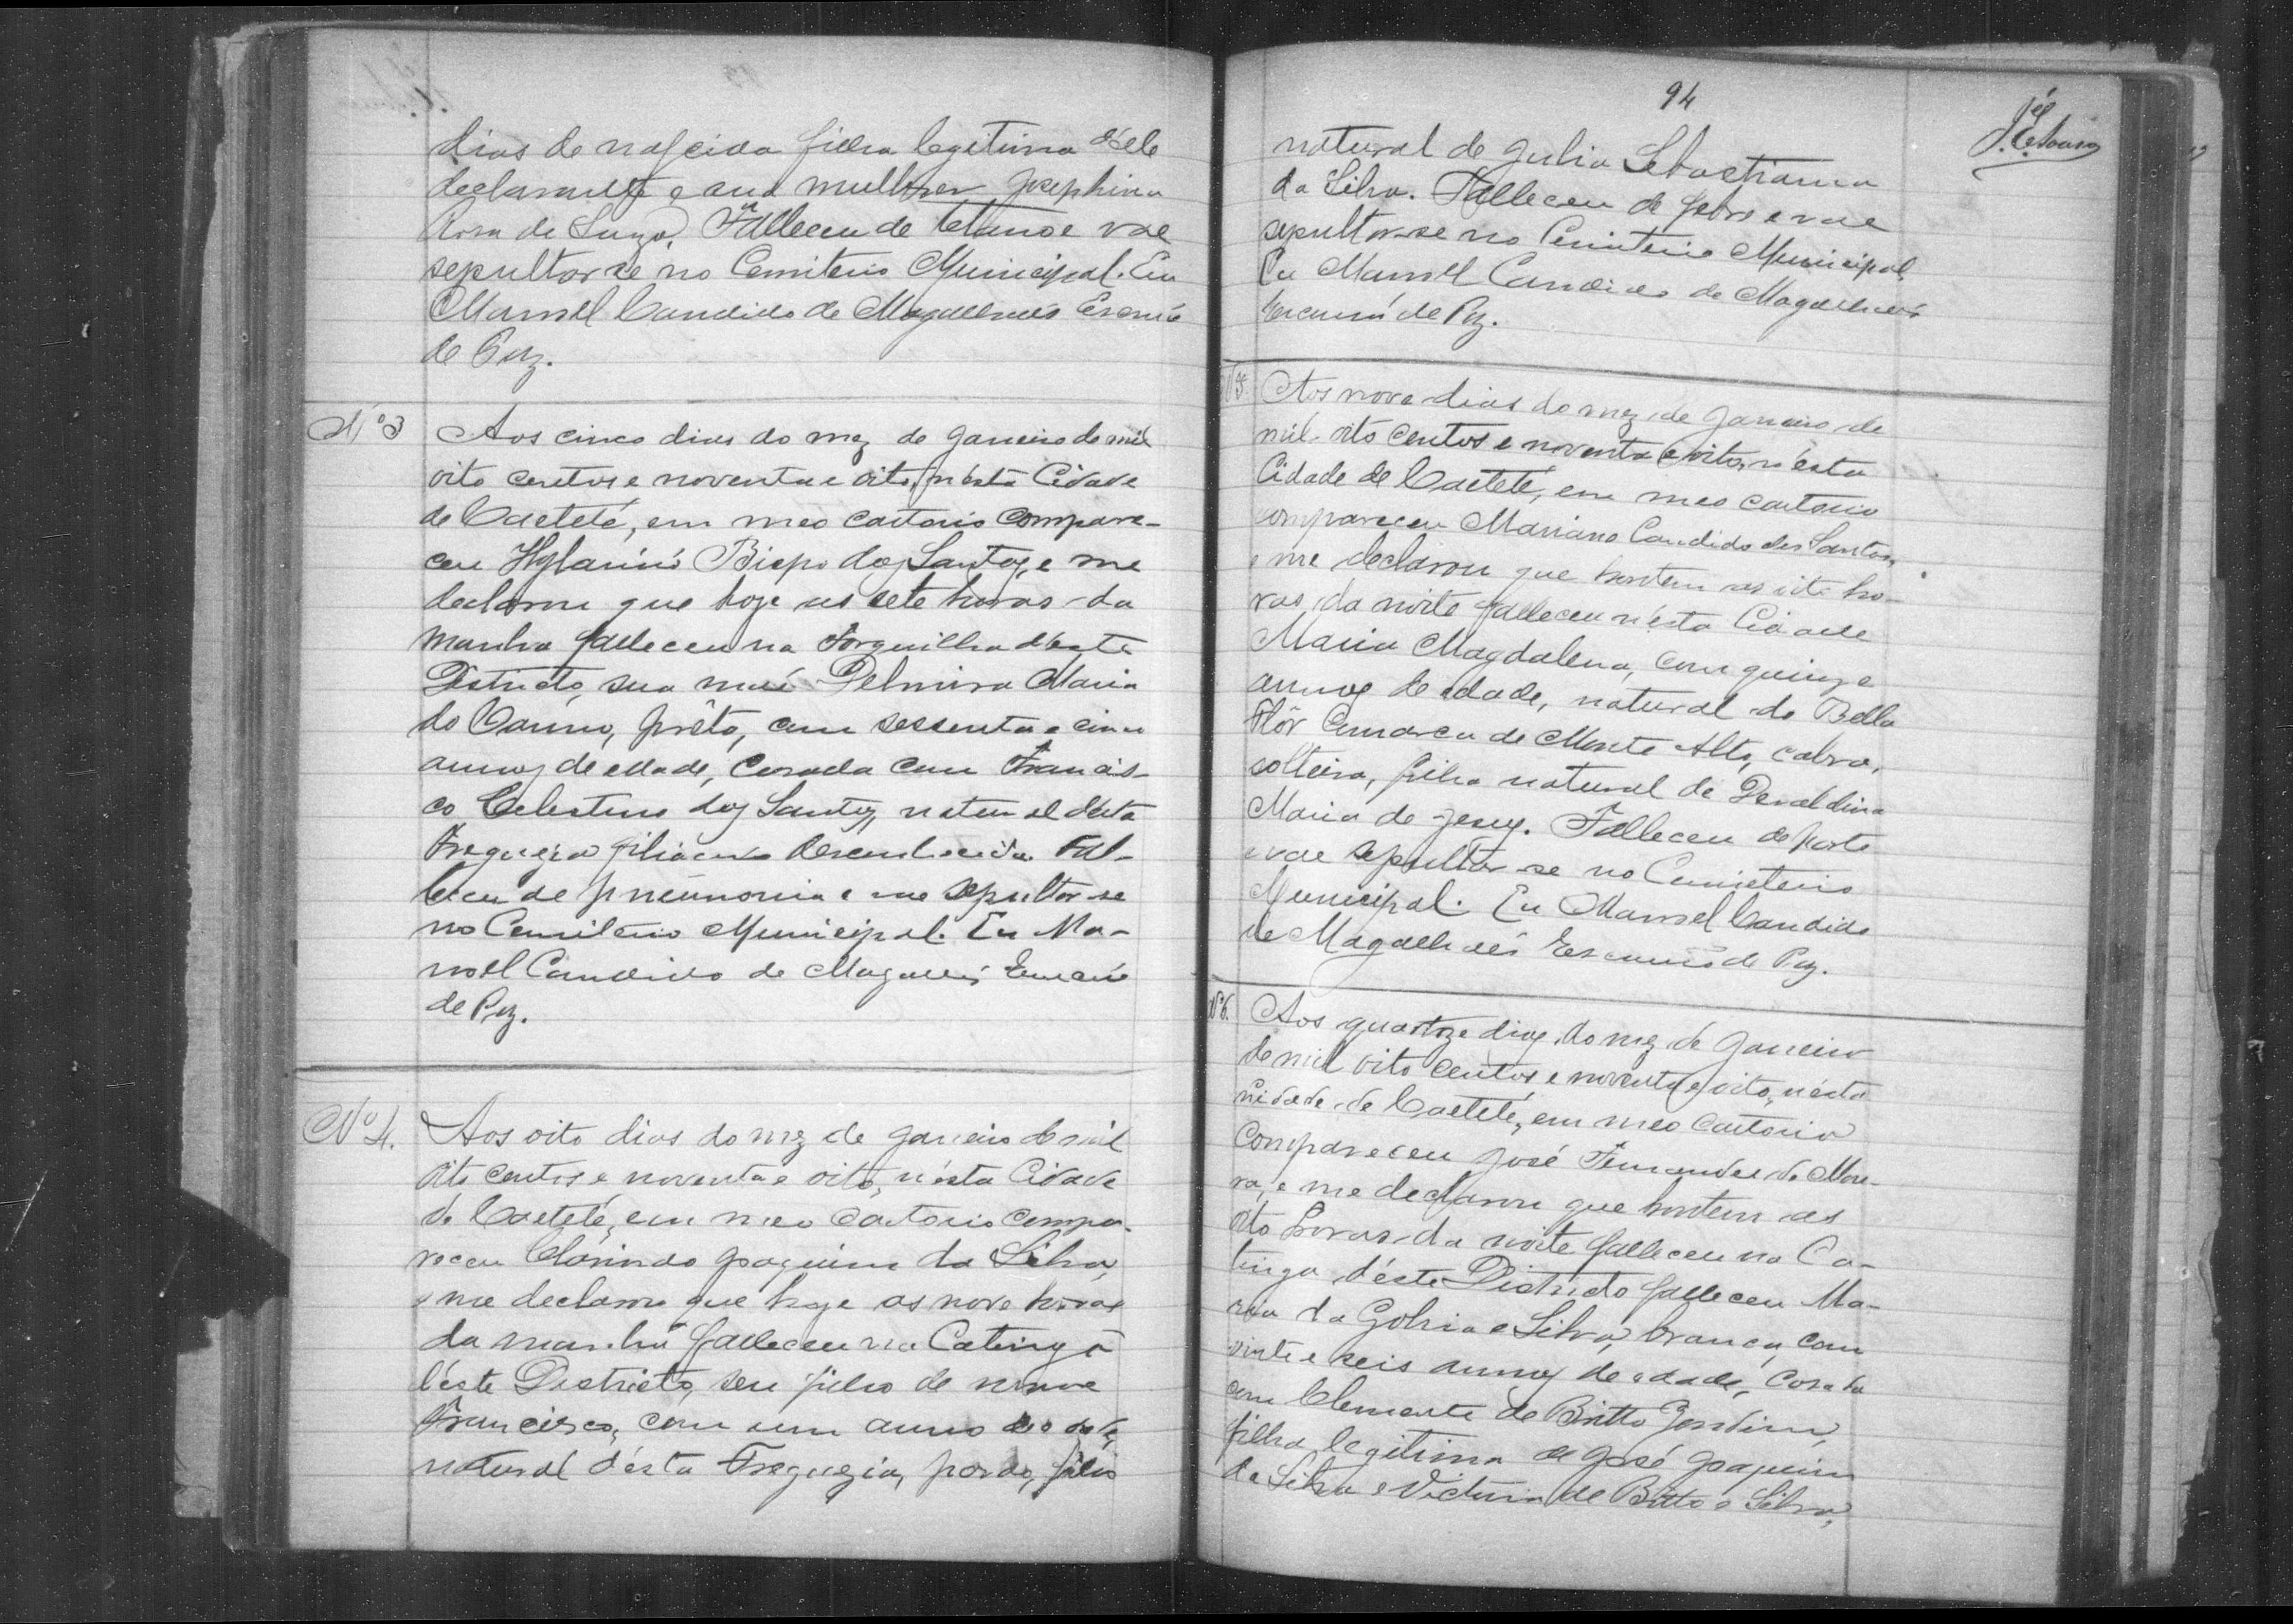 dias de nascida filha legitima d'elle
declarante e sua mulher Josephina
Rosa de Luzo, Falleceu de tetano e vae
sepultar-se no Cemiterio Municipal. Eu
Manoel Candido de Magalhães Escrivão
de Paz.
Nº 3
Aos cinco dias do mez de Janeiro de mil
oito centos e noventa e oito, n'ésta Cidade
de Caeteté, em meo cartorio compare-
ceu Bispo dos Santos, e me
declarou que hoje as sete horas da
manhã falleceu na Forquilha d'este
Districto, sua mãe Delmira Maria
do Carmo, prêta, com sessenta e cinco
annos de edade, casada com Francis-
co Celestino dos Santos, natural d'esta
Freguezia filiação desconhecida. Fal-
leceu de pneumonia e vae sepultar-se
no Cemiterio Municipal. Eu Ma-
noel Candido de Magalhães Escrivão
de Paz.
Nº 4.
Aos oito dias do mez de Janeiro de mil
oito centos e noventa e oito, n'ésta Cidade
de Caeteté, em meo Cartorio compa-
receu Clarindo Joaquim da Silva,
e me declarou que hoje as nove horas
da manhã falleceu na Catinga
d'éste Districto, seu filho de nome
Francisco, com um anno de edade,
natural d'ésta Freguezia, pardo, filho
94
natural de Julia Sebastiana
da Silva. Falleceu de febre e vae
sepultar-se no Cemiterio Municipal.
Eu Manoel Candido de Magalhães
Escrivão de Paz.
Nº 5.
Aos nove dias do mez de Janeiro de
mil oito centos e noventa e oito, n'ésta
Cidade de Caeteté, em meo cartorio
compareceu Mariano Candido dos Santos,
e me declarou que hontem as oito ho-
ras da noite falleceu n'ésta Cidade
Maria Magdalena, com quinze
annos de edade, natural de Bella
Flôr Comarca de Monte Alto, cabra,
solteira, filha natural de
Maria de Jesus. Falleceu de parto
e vae sepultar-se no Cemiterio
Municipal. Eu Manoel Candido
de Magalhães Escrivão de Paz.
Nº 6.
Aos quartoze dias do mez de Janeiro
de mil oito centos e noventa e oito, n'ésta
Cidade de Caeteté, em meo Cartorio
compareceu José Fernandes de
e me declarou que hontem as
oito horas da noite falleceu na Ca-
tinga d'éste Districto falleceu Ma-
ria da e Silva, branca, com
vinte e seis annos de edade, casada
com Clemente de Britto Gondim,
filha legitima de José Joaquim
da Silva e Victoria de Britto e Silva,